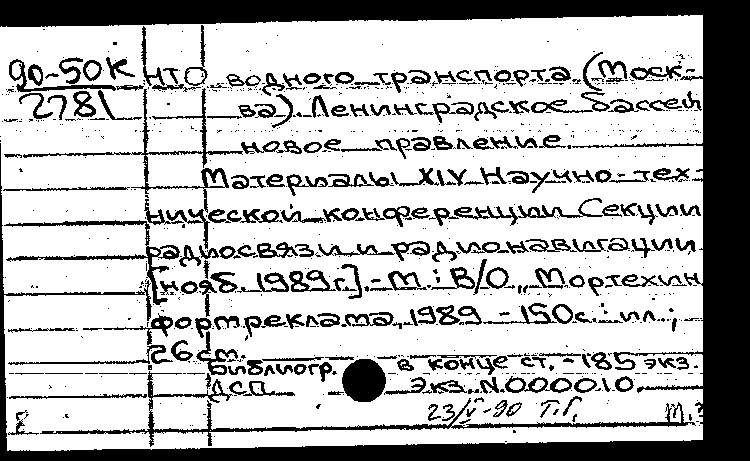 90-50К НТО водного транспорта (Моск-
2781 ва). Ленинградское бассей
новое правление.
Материалы XIV Научно-тех-
нической конференции Секции
радиосвязи и радионавигации
[нояб. 1989г.].-М.: В/О „Мортехин
формреклама, 1989 -150с.: ил.;
26 см.
Библиогр. в конце ст. -185 экз.
ДСП Экз. N000010.
23/V-90 Т.Г. м.